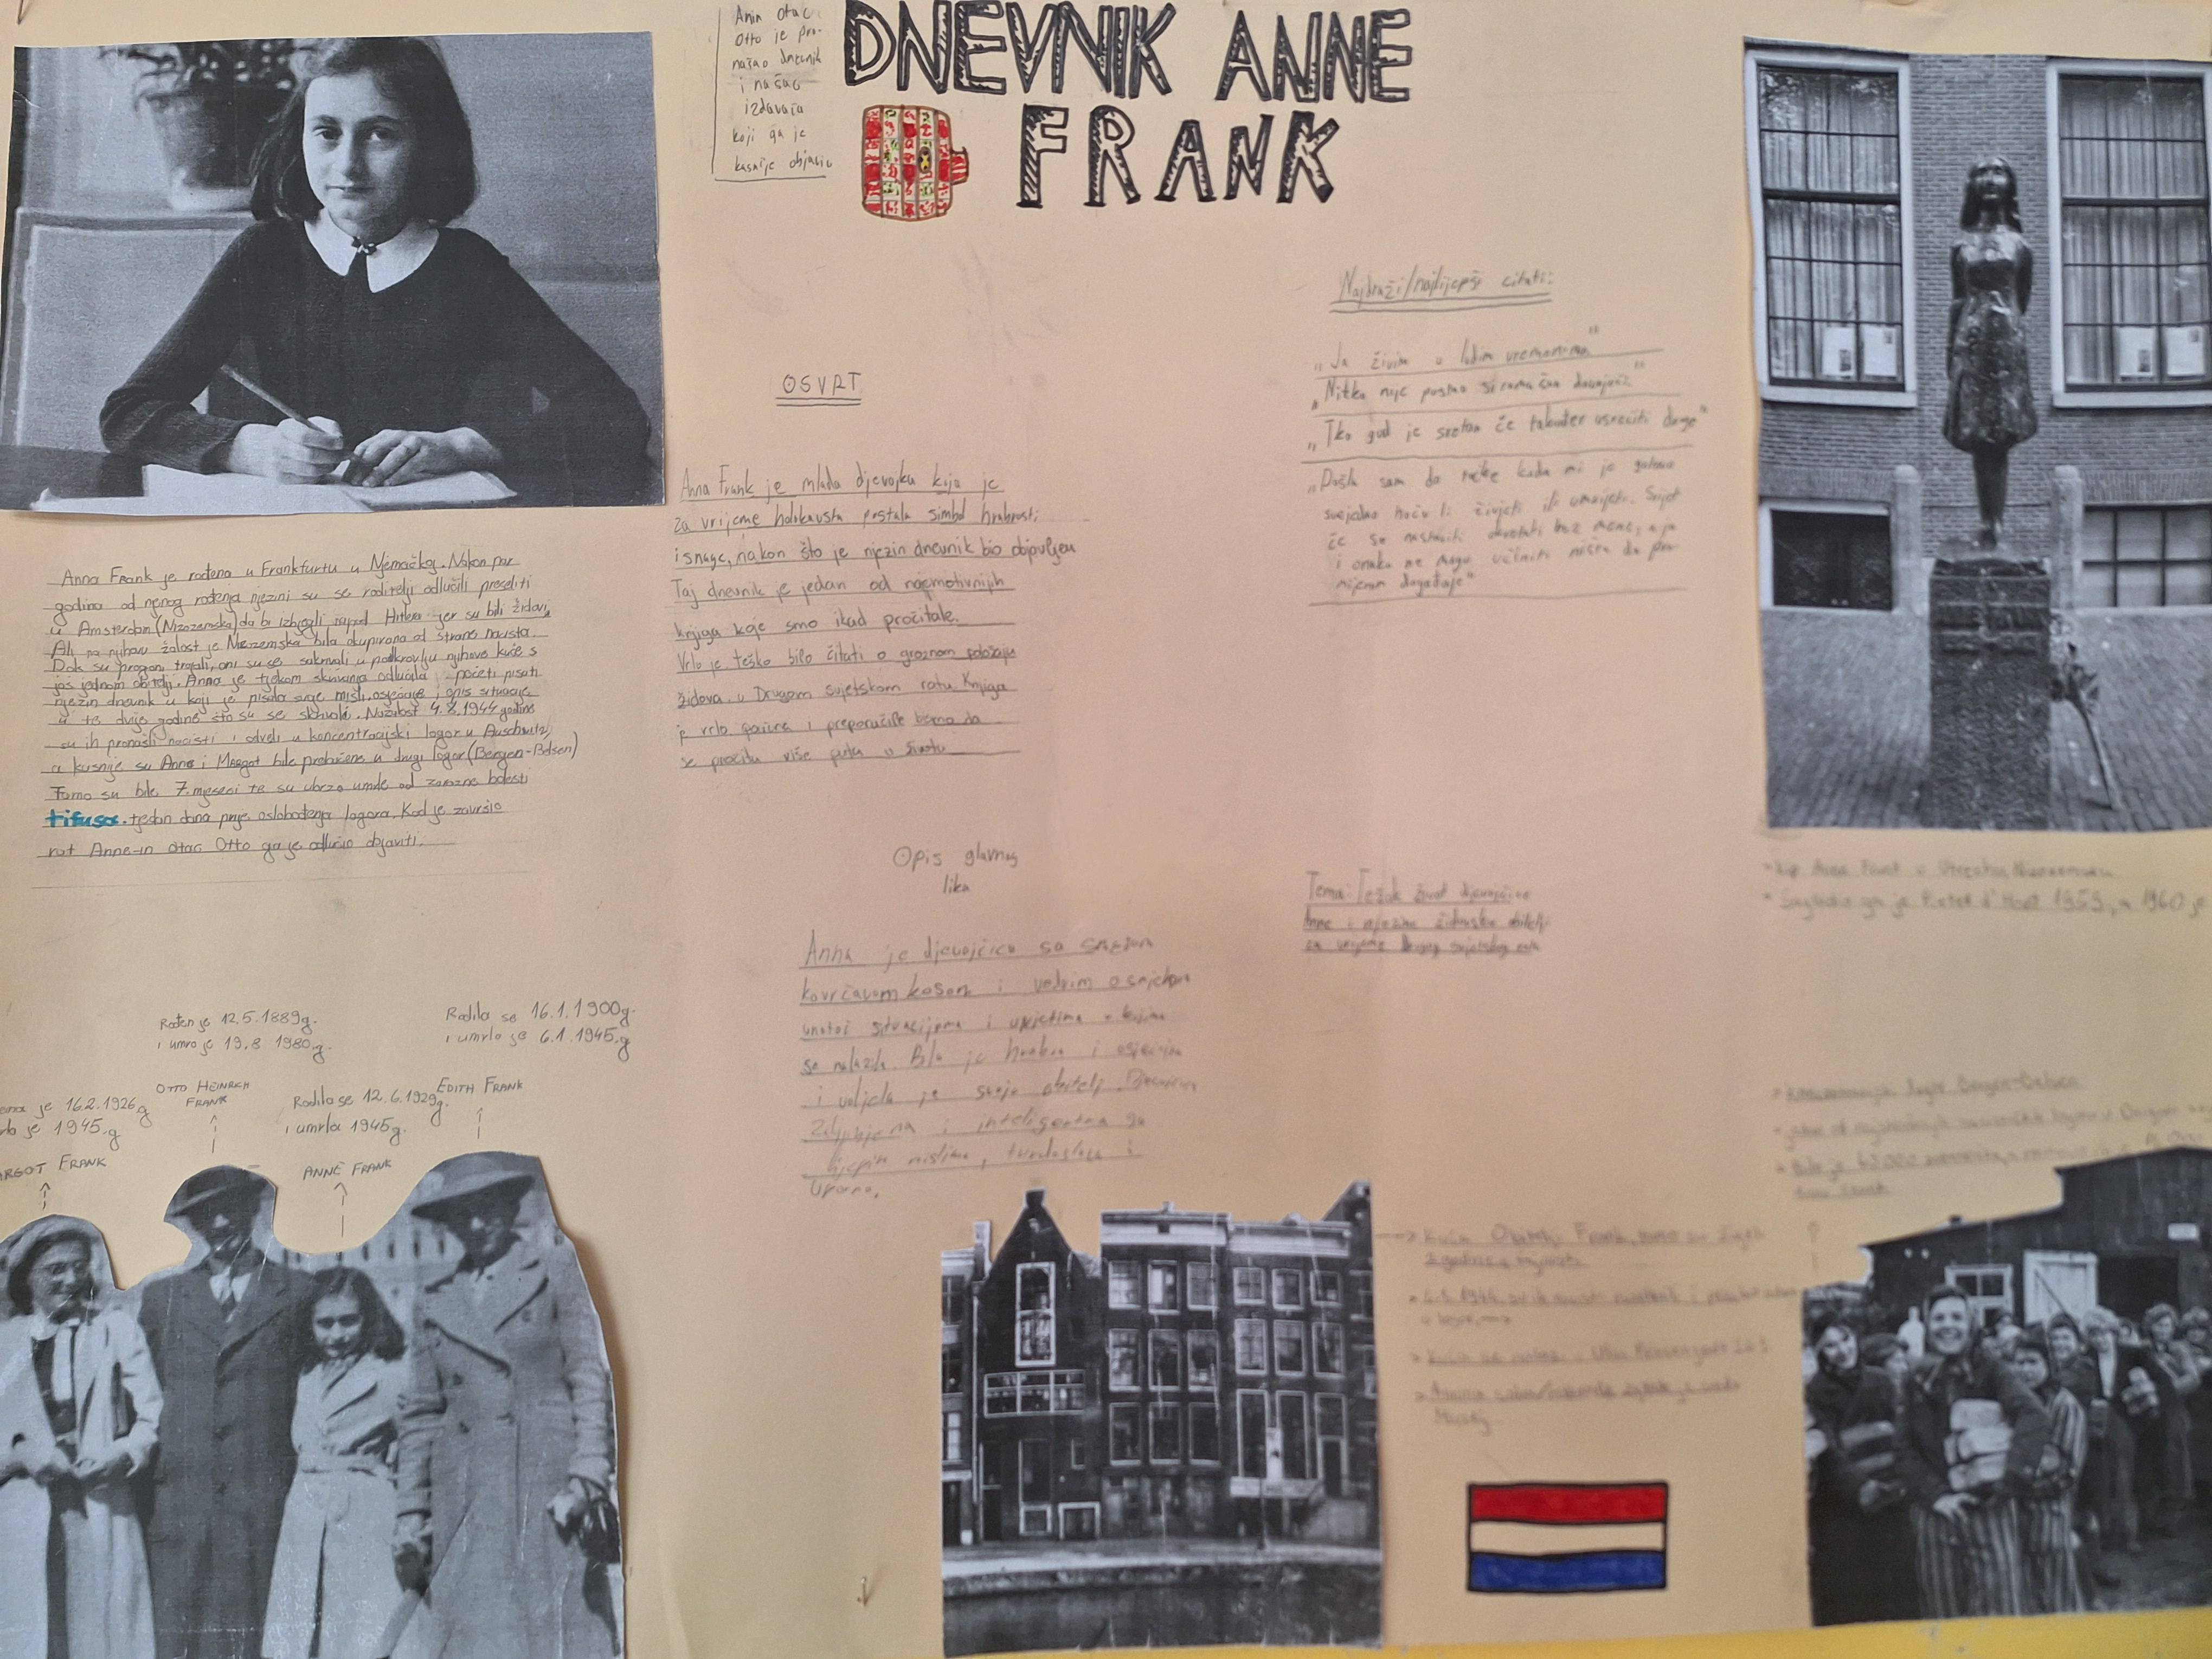 Anin otac
Otto je pro-
našao dnevnik
i našao
izdavača
koji ga je
kasnije objavio
DNEVNIK ANNE
FRANK
Anna Frank je rođena u Frankfurtu u Njemačkoj. Nakon par
godina od njenog rođenja njezini su se roditelji odlučili preseliti
u Amsterdam (Nizozemska) da bi izbjegli napad Hitlera jer su bili židovi
Ali na njihovu žalost je Nizozemska bila okupirana od strane nacista.
Dok su progoni trajali, oni su se sakrivali u potkrovlju njihove kuće s
još jednom obitelji. Anna je tijekom skrivanja odlučila početi pisati
njezin dnevnik u koji je pisala svoje misli, osjećaje i opis situacije
u te dvije godine što su se skrivali. Nažalost 4.8.1944 godine
su ih pronašli nacisti i odveli u koncentracijski logor u Auschwitz,
a kasnije su Anna i Margot bile prebačene u drugi logor (Bergen-Belsen)
Tamo su bile 7 mjeseci te su ubrzo umrle od zarazne bolesti
tifusa. tjedan dana prije oslobođenja logora. Kad je završio
rat Anne-in otac Otto ga je odlučio objaviti.
OSVRT
Anna Frank je mlada djevojka koja je
za vrijeme holokausta postala simbol hrabrosti
i snage, nakon što je njezin dnevnik bio objavljen
Taj dnevnik je jedan od najemotivnijih
knjiga koje smo ikad pročitale.
Vrlo je teško bilo čitati o groznom položaju
židova u Drugom svjetskom ratu Knjiga
je vrlo i preporučile bismo da
se pročita više puta u životu
Najdraži/najljepši citati:
„Ja živim u ludim vremenima"
„Nitko nije postao siromašan davajući"
„Tko god je sretan će također usrećiti druge"
„Došla sam do točke kada mi je gotovo
svejedno hoću li živjeti ili umrijeti. Svijet
će se nastaviti okretati bez mene, a ja
i onako ne mogu učiniti ništa da pro-
mijenim događaje"
Opis glavnog
lika
Anna je djevojčica sa smeđom
kovrčavom kosom i velikim osmjehom
unatoč situacijama i uvjetima u kojima
se nalazila. Bila je hrabra i osjećajna
i voljela je svoju obitelj.
i inteligentna
mislima, tvrdoglava i
uporna.
Tema: Težak život djevojčice
Anne i njezine židovske obitelji
za vrijeme Drugog svjetskog rata
Kip Anne Frank u Utrechtu Nizozemska
Sagradio ga je Pieter d'Hont 1959, a 1960 je
Rođen je 12.5.1889g.
i umro je 19.8 1980.g.
OTTO HEINRICH
FRANK
Rodila se 16.1.1900g.
i umrla je 6.1.1945.g
EDITH FRANK
je 16.2.1926.g
je 1945.g
RGOT FRANK
Rodila se 12.6.1929g.
i umrla 1945g.
ANNE FRANK
Kuća Obitelji Frank, tamo su živjeli
2 godine u tajnosti
1944 su ih i
Kuća se nalazi u Ulici Prinsengracht 263
Muzej.
logor Bergen-Belsen